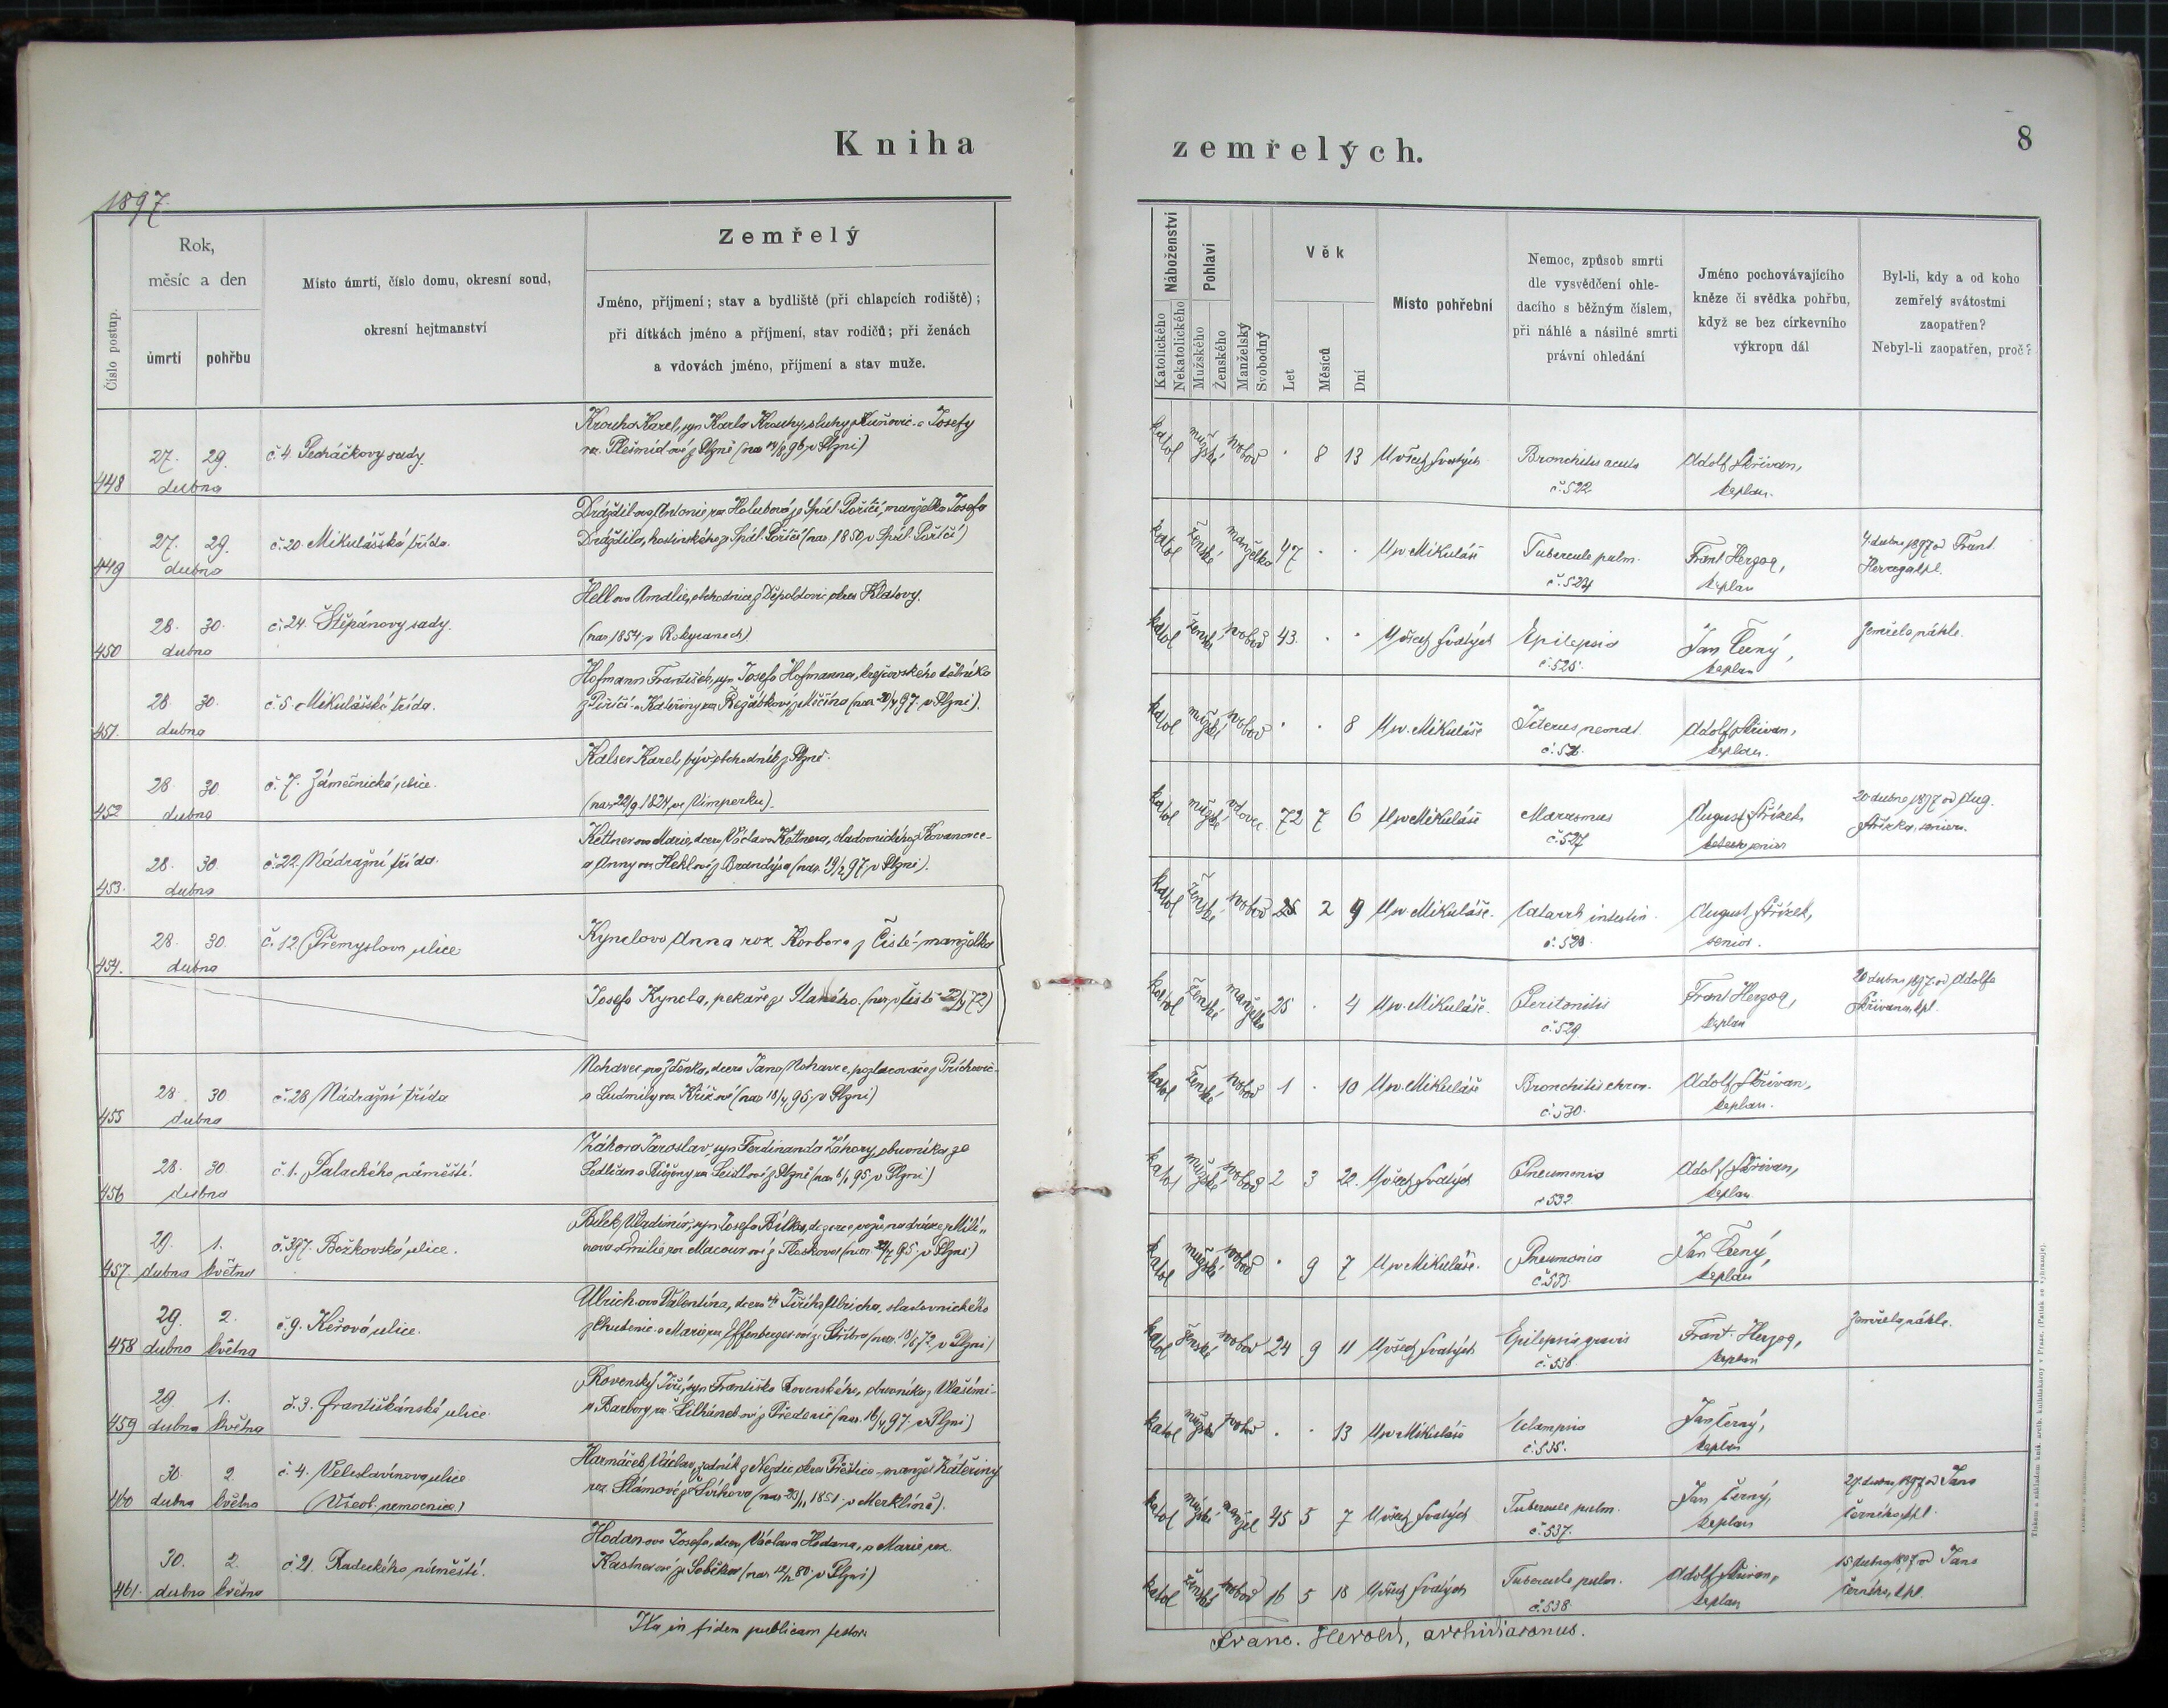 Kniha
zemřelých.
8
1897
Číslo postup.
Rok,
měsíc a den
úmrtí
pohřbu
Místo úmrtí, číslo domu, okresní soud,
okresní hejtmanství
Zemřelý
Jméno, příjmení; stav a bydliště (při chlapcích rodiště);
při dítkách jméno a příjmení, stav rodičů; při ženách
a vdovách jméno, příjmení a stav muže.
Náboženství
Katolického
Nekatolického
Pohlaví
Mužského
Ženského
Manželský
Svobodný
Věk
Let
Měsíců
Dní
Místo pohřební
Nemoc, způsob smrti
dle vysvědčení ohle-
dacího s běžným číslem,
při náhlé a násilné smrti
právní ohledání
Jméno pochovávajícího
kněze či svědka pohřbu,
když se bez církevního
výkropu dál
Byl-li, kdy a od koho
zemřelý svátostmi
zaopatřen?
Nebyl-li zaopatřen, proč?
448
27. 29.
dubna
č. 4. Pecháčkovy sady.
Krouha Karel, syn Karla Krouhy, sluhy z Kuňovic a Josefy
v Plzni)
katol mužské svobod . 8 13 U všech svatých
Bronchitis acuta
č. 522
Adolf Skřivan,
kaplan.
449
27. 29.
dubna
č. 20. Mikulášská třída.
Drážďilova Antonie, roz Holubová ze Spál. Poříčí, manželka Josefa
Drážďila, hostinského z Spál. Poříčí (nar. 1850 v Spál. Poříčí)
katol ženské manželka 47 . . U sv Mikuláše
Tubercule pulm.
č. 524
Frant Herzog,
kaplan
4. dubna 1897 od Frant.
Herzoga kpl.
450
28. 30.
dubna
č. 24. Štěpánovy sady.
Hellova Amalie, obchodnice z Děpoltovic, okres Klatovy.
(nar 1854 v Rokycanech)
katol ženské svobod 43. . . U všech svatých
Epilepsia
č. 525.
Jan Černý,
kaplan
Zemřela náhle.
451.
28. 30.
dubna
č. 5. Mikulášská třída.
Hofmann František, syn Josefa Hofmanna, krejčovského dělníka
z Poříčí a Kateřiny roz Řežábkové z Měčína (nar 20/4 97. v Plzni).
katol mužské svobod . . 8 U sv. Mikuláše
Icterus neonat.
Adolf Skřivan,
kaplan.
452
28. 30
dubna
č. 7. Zámečnická ulice.
Kalser Karel, býv obchodník z Plzně.
(nar 22/9 1824, ve Vimperku).
katol mužské vdovec 72 7 6 U sv Mikuláše
Marasmus
č. 527
August Střízek,
senior
20 dubna 1897 od Aug.
Střízka, seniora.
453.
28. 30.
dubna
č. 22. Nádražní třída.
Kettnerova Marie, dcera Václava Kettnera, sladovnického z Kovanovce
a Anny roz Heklové z Brandýsa (nar. 19/2 97, v Plzni).
katol ženské svobod 2 9 U sv Mikuláše.
Catarrh intestin.
č. 528
August Střízek,
senior.
454.
28. 30.
dubna
č. 12. Přemyslova ulice
Kynclova Anna roz. Korbova z Čisté manželka
Josefa Kyncla, pekaře ze Slaného. (nar v Čisté 22/4 72)
katol ženské manželka 25 . 4 U sv. Mikuláše.
Peritonitis
č. 529
Frant Herzog,
kaplan
20 dubna 1897. od Adolfa
Skřivana, kpl.
455
28. 30
dubna
č. 28 Nádražní třída
Mohavecova Zdenka, dcera Jana Mohavce, pozlacovače z Příchovic
a Ludmily roz Křížové (nar 18/4 95, v Plzni)
katol ženské svobod 1 . 10 U sv. Mikuláše
Bronchitis chron.
č. 530.
Adolf Skřivan,
kaplan.
456
28. 30
dubna
č. 1. Palackého náměstí.
Záhora Jaroslav, syn Ferdinanda Záhory, obuvníka ze
Sedlčan a Růženy roz Seidlové z Plzně (nar 6/1 95, v Plzni)
katol mužské svobod 2 3 22. U všech svatých
Pneumonia
č 532
Adolf Skřivan,
kaplan.
457.
29. 1.
dubna května
č. 397. Božkovská ulice.
Bílek Vladimír, syn Josefa Bílka, dozorce vozů na dráze z Milí-
nova a Emilie roz Macourové z Ploskova (nar v Plzni)
katol mužské svobod . 9 7 U sv Mikuláše.
Pneumonia
č. 533.
Jan Černý,
kaplan
458
29. 2.
dubna května
č. 9. Keřová ulice.
Ulrichova Valentina, dcera Jiřího Ulricha, sladovnického
z Chudenic a Marie roz Effenbergerové ze Stříbra (nar. 18/7 72, v Plzni)
katol ženské svobod 24 9 11 U všech svatých
Epilepsia gravis
č. 536
Frant. Herzog,
kaplan
Zemřela náhle.
459
29. 1.
dubna května
č. 3. Františkánská ulice.
Rovenský Jiří, syn Františka Rovenského, obuvníka z Vlašimi
a Barbory roz. Lilhánkové z Předenic (nar. 16/4 97. v Plzni)
katol mužské svobod . . 13 U sv Mikuláše
Eclampsia
č. 535.
Jan Černý,
kaplan
460
30. 2.
dubna května
č. 4. Veleslavínova ulice
(Všeob. nemocnice.)
Harmáček Václav, zedník z Nezdic, okres Přeštice, manžel Kateřiny
roz. Slámové ze Švihova (nar 23/11 1851 v Merklíně).
katol mužské manžel 45 5 7 U všech svatých
Tubercule pulm.
č. 537.
Jan Černý,
kaplan
27. dubna 1897 od Jana
Černého kpl.
461.
30. 2.
dubna května
č 21. Radeckého náměstí.
Hodanova Josefa, dcera Václava Hodana, a Marie, roz.
Kastnerové ze Soběkur (nar 12/11 80. v Plzni)
katol ženské svobod 16 5 18 U všech svatých
Tubercule pulm.
č. 538.
Adolf Skřivan,
kaplan
15 dubna 1897 od Jana
Černého, kpl.
Ita in fidem publicam testor
Franc. Herold, archidiaconus.